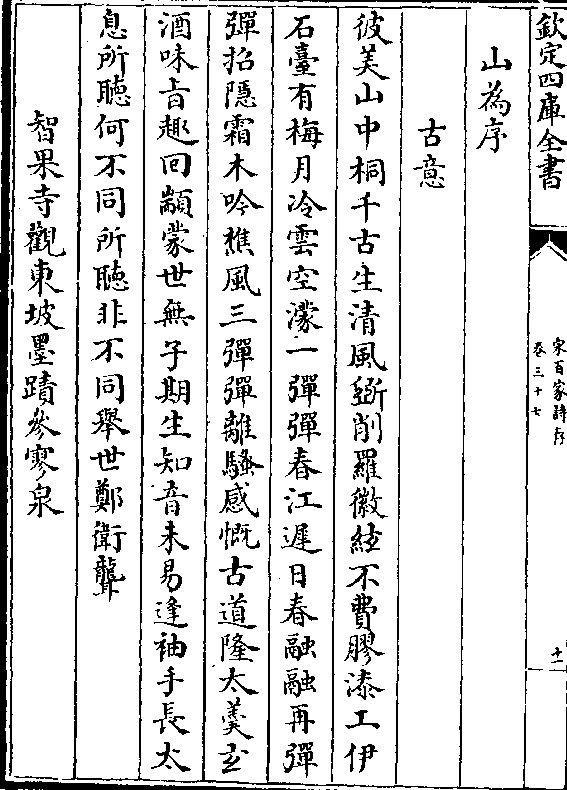 欽定四庫全書
宋百家詩存
卷三十七
十一
山為序
古意
彼美山中桐千古生清風斲削羅徽絃不費膠漆工伊
石臺有梅月冷雲空濛一彈彈春江遲日春融融再彈
彈招隱霜木吟樵風三彈彈離騷感慨古道隆太羹玄
酒味旨趣回顓蒙世無子期生知音未易逢袖手長太
息所聽何不同所聽非不同舉世鄭衛聾
智果寺觀東坡墨蹟參寥泉